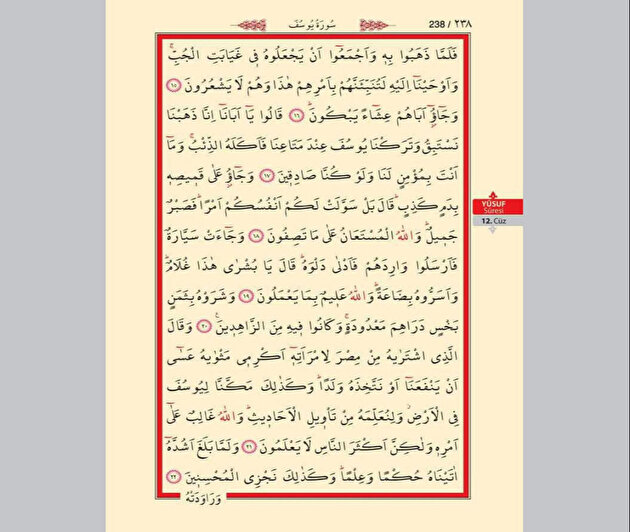 سُورَةُ يُوسُفَ
238 / ٢٣٨
فَلَمَّا ذَهَبُوا بِه۪ وَاَجْمَعُٓوا اَنْ يَجْعَلُوهُ ف۪ي غَيَابَتِ الْجُبِّۚ
وَاَوْحَيْنَٓا اِلَيْهِ لَتُنَبِّئَنَّهُمْ بِاَمْرِهِمْ هٰذَا وَهُمْ لَا يَشْعُرُونَ ﴿١٥﴾
وَجَٓاؤُٓ۫ اَبَاهُمْ عِشَٓاءً يَبْكُونَۜ ﴿١٦﴾ قَالُوا يَٓا اَبَانَٓا اِنَّا ذَهَبْنَا
نَسْتَبِقُ وَتَرَكْنَا يُوسُفَ عِنْدَ مَتَاعِنَا فَاَكَلَهُ الذِّئْبُۚ وَمَٓا
اَنْتَ بِمُؤْمِنٍ لَنَا وَلَوْ كُنَّا صَادِق۪ينَ ﴿١٧﴾ وَجَٓاؤُ۫ عَلٰى قَم۪يصِه۪
بِدَمٍ كَذِبٍۜ قَالَ بَلْ سَوَّلَتْ لَكُمْ اَنْفُسُكُمْ اَمْرًاۜ فَصَبْرٌ
جَم۪يلٌۜ وَاللّٰهُ الْمُسْتَعَانُ عَلٰى مَا تَصِفُونَ ﴿١٨﴾ وَجَٓاءَتْ سَيَّارَةٌ
فَاَرْسَلُوا وَارِدَهُمْ فَاَدْلٰى دَلْوَهُۜ قَالَ يَا بُشْرٰى هٰذَا غُلَامٌۜ
وَاَسَرُّوهُ بِضَاعَةًۜ وَاللّٰهُ عَل۪يمٌ بِمَا يَعْمَلُونَ ﴿١٩﴾ وَشَرَوْهُ بِثَمَنٍ
بَخْسٍ دَرَاهِمَ مَعْدُودَةٍۚ وَكَانُوا ف۪يهِ مِنَ الزَّاهِد۪ينَ۟ ﴿٢٠﴾ وَقَالَ
الَّذِي اشْتَرٰيهُ مِنْ مِصْرَ لِامْرَاَتِه۪ٓ اَكْرِم۪ي مَثْوٰيهُ عَسٰٓى
اَنْ يَنْفَعَنَٓا اَوْ نَتَّخِذَهُ وَلَدًاۜ وَكَذٰلِكَ مَكَّنَّا لِيُوسُفَ
فِي الْاَرْضِۘ وَلِنُعَلِّمَهُ مِنْ تَأْو۪يلِ الْاَحَاد۪يثِۜ وَاللّٰهُ غَالِبٌ عَلٰٓى
اَمْرِه۪ وَلٰكِنَّ اَكْثَرَ النَّاسِ لَا يَعْلَمُونَ ﴿٢١﴾ وَلَمَّا بَلَغَ اَشُدَّهُٓ
اٰتَيْنَاهُ حُكْمًا وَعِلْمًاۜ وَكَذٰلِكَ نَجْزِي الْمُحْسِن۪ينَ ﴿٢٢﴾
وَرَاوَدَتْهُ
YÛSUF
Sûresi
12. Cüz